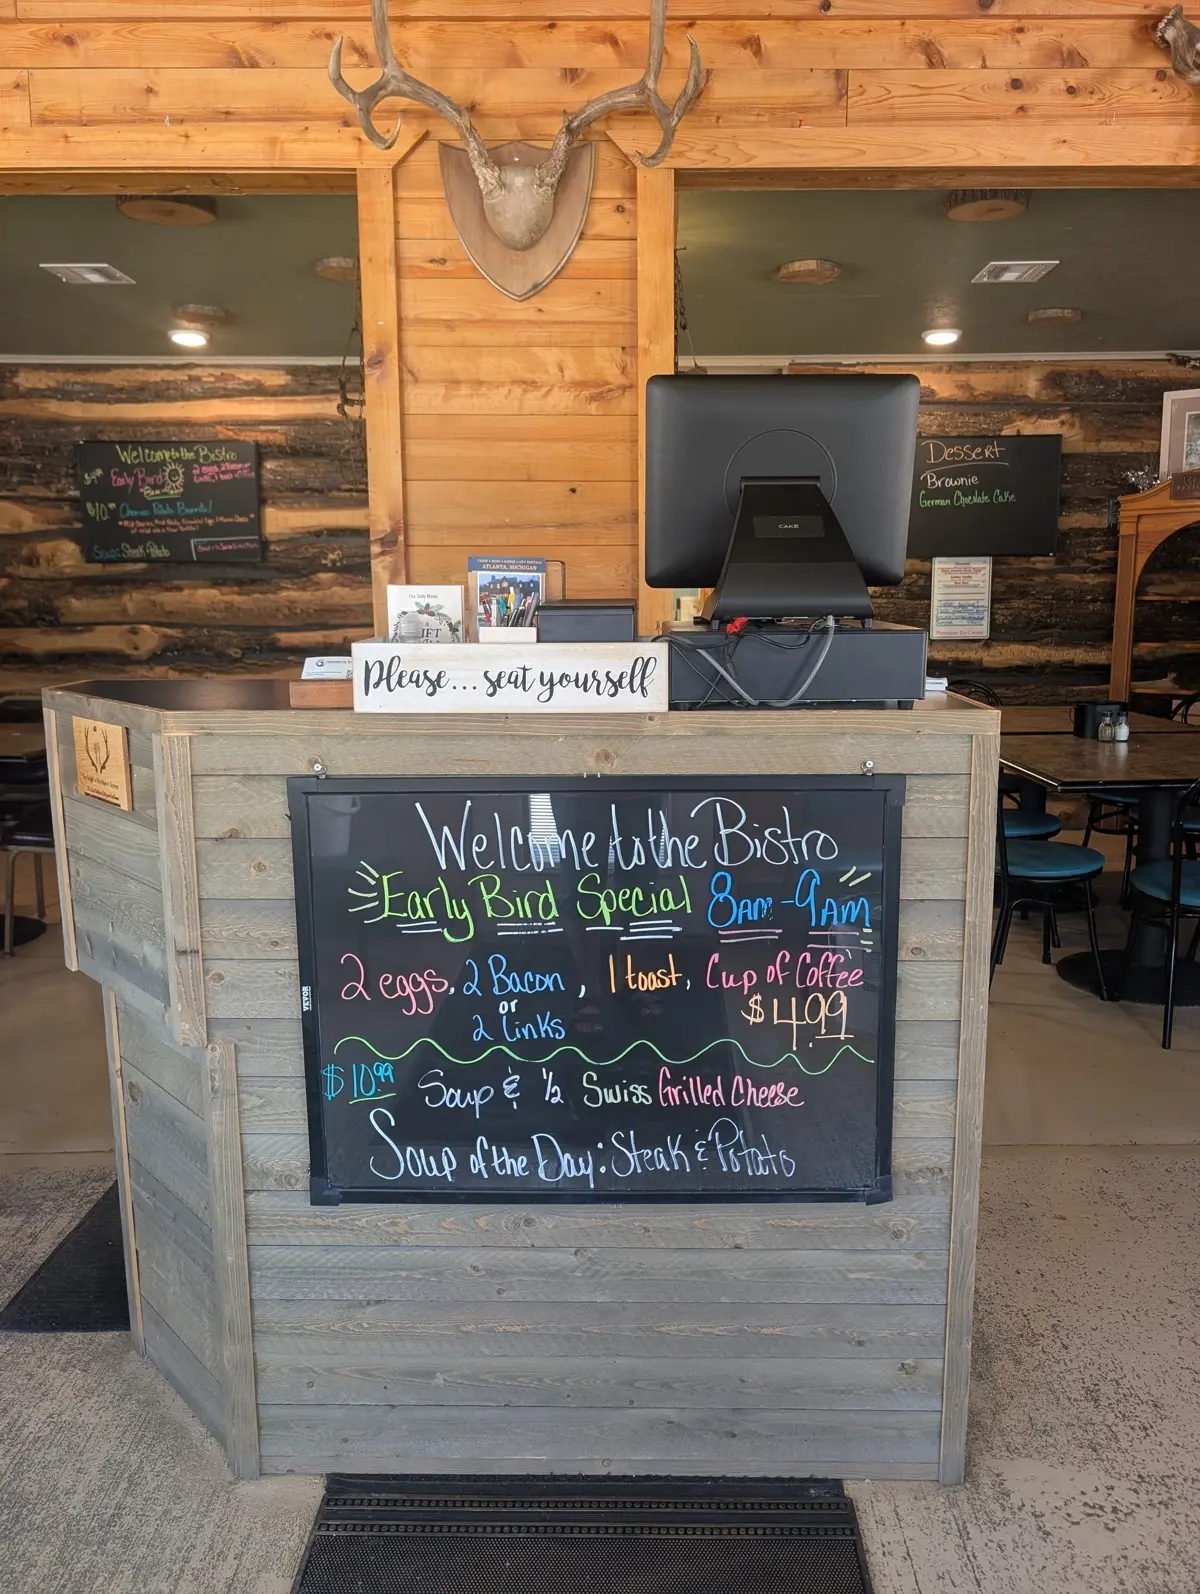 Welcome to the Bistro
$4.99 Early Bird
8am-9am
2 eggs, 2 Bacon or
$10.99
Soup: Steak & Potato
Dessert
Brownie
German Chocolate Cake
ATLANTA, MICHIGAN
Our Daily Bread
Please... seat yourself
CAKE
Premium Ice Cream
Welcome to the Bistro
Early Bird Special 8AM-9AM
2 eggs, 2 Bacon, 1 toast, Cup of Coffee
or
2 Links
$4.99
$10.99 Soup & 1/2 Swiss Grilled Cheese
Soup of the Day: Steak & Potato
VEVOR